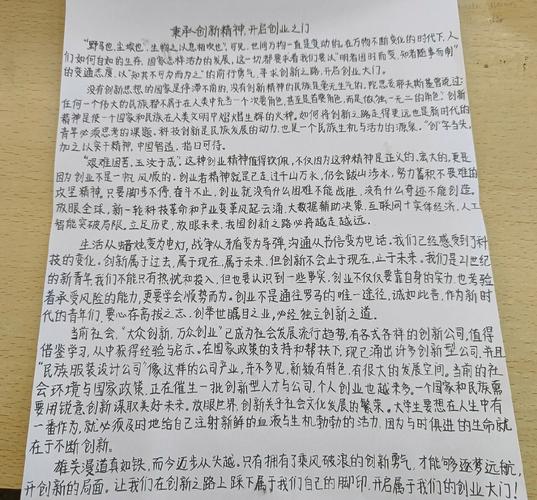 秉承创新精神,开启创业之门
“野马也,尘埃也,生物之以息相吹也”,可见,世间万物一直是变动的。在万物不断变化的时代下,人
们如何自如的生存,国家怎样活力的发展,这一切都要求着我们要以“明者因时而变,知者随事而制”
的变通态度,以“知其不可为而为之”的前行勇气,寻求创新之路,开启创业大门。
没有创新思想的国家是停滞不前的,没有创新精神的民族是毫无生气的,陀思妥耶夫斯基曾说过:
任何一个伟大的民族都不屑于在人类中充当一个次要角色,甚至是首要角色,而是做独一无二的角色。”创新
精神是使一个国家和民族在人类文明中熠熠生辉的火种。如何将创新之路走得更远也是新时代的
青年必须思考的课题,科技创新是民族发展的动力,也是一个民族生机与活力的源泉,“创”字当头,
加之以实干精神,中国智造,指日可待。
“艰难困苦,玉汝于成”,这种创业精神值得钦佩,不仅因为这种精神是正义的,高大的,更是
因为创业不是一帆风顺的,创业者精神就是已走过千山万水,仍会跋山涉水,努力蓄积不畏难的
攻坚精神,只要脚步不停,奋斗不止,创业就没有什么困难不能战胜,没有什么奇迹不能创造,
放眼全球,新一轮科技革命和产业变革风起云涌,大数据辅助决策,互联网十实体经济,人工
智能突破局限,立足历史,放眼未来,我国创新之路必将越走越远。
生活从蜡烛变为电灯,战争从矛盾变为导弹,沟通从书信变为电话。我们已经感受到了科
技的变化。创新属于过去,属于现在,属于未来,但创新不会止于现在,止于未来。我们是21世纪
的新青年,我们不能只有热忱和投入,但也要认识到一些事实,创业不仅仅要靠自身的实力,也考验
着承受风险的能力,更要学会顺势而为。创业不是通往罗马的唯一途径,诚如此卷,作为新时
代的青年们,要心存高拔之志,创举世瞩目之业,必经独立创新之道。
当前社会,“大众创新,万众创业”已成为社会发展流行趋势,有各式各样的创新公司,值得
借鉴学习,从中获得经验与启示。在国家政策的支持和帮扶下,现已涌出许多创新型公司,并且
“民族服装设计公司”像这样的公司产业,并不多见,新颖有特色,有很大的发展空间。当前的社
会环境与国家政策,正在催生一批创新型人才与公司,个人创业也越来多。一个国家和民族需
要用锐意创新谋取美好未来。放眼世界,创新关乎社会文化发展的繁荣。大学生要想在人生中有
一番作为,就必须及时地给自己注射新鲜的血液与生机勃勃的活力,因为与时俱进的生命就
在于不断创新。
雄关漫道真如铁,而今迈步从头越。只有拥有了乘风破浪的创新勇气,才能够逐梦远航,
开创新的局面。让我们在创新之路上踩下属于我们自己的脚印,开启属于我们的创业大门!